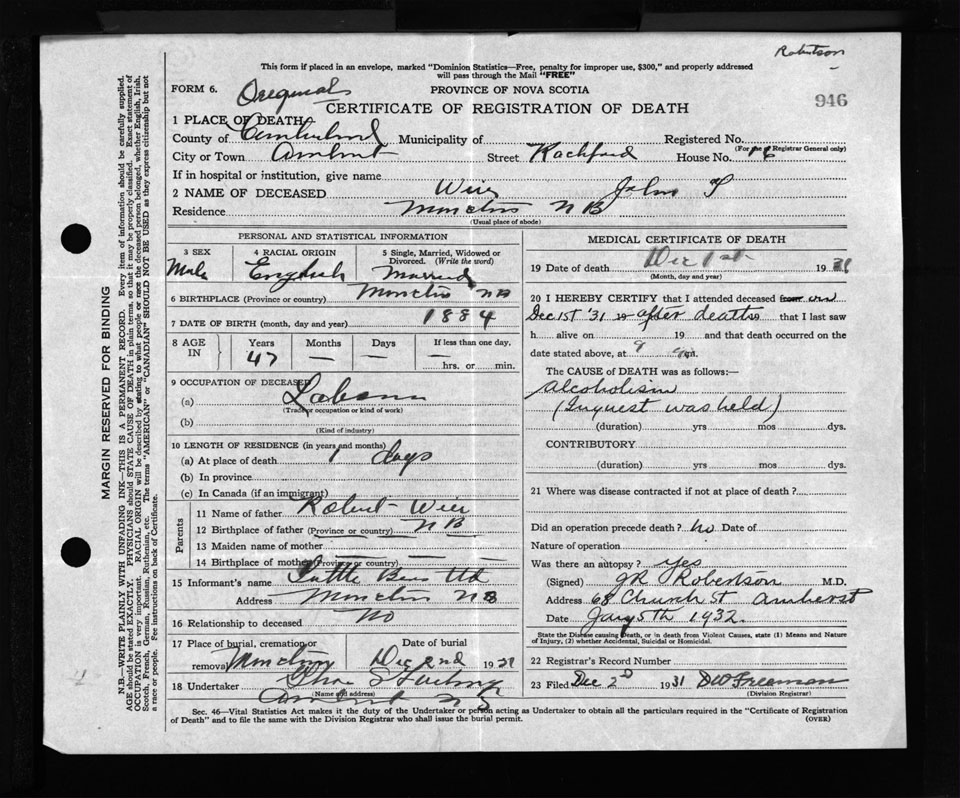 Robertson
This form if placed in an envelope, marked "Dominion Statistics—Free, penalty for improper use, $300," and properly addressed
will pass through the Mail "FREE"
FORM 6. Original PROVINCE OF NOVA SCOTIA
946
CERTIFICATE OF REGISTRATION OF DEATH
1 PLACE OF DEATH
County of Cumberland Municipality of Registered No.
(For the Registrar General only)
City or Town Amherst Street Rachford House No. 16
If in hospital or institution, give name
2 NAME OF DECEASED Wier John
Residence Moncton N B
(Usual place of abode)
PERSONAL AND STATISTICAL INFORMATION
3 SEX 4 RACIAL ORIGIN 5 Single, Married, Widowed or
Divorced. (Write the word)
Male English Married
6 BIRTHPLACE (Province or country) Moncton NB
7 DATE OF BIRTH (month, day and year) 1884
8 AGE IN Years Months Days If less than one day,
47 — — — hrs. or min.
9 OCCUPATION OF DECEASED
(a) Laborer
(Trade or occupation or kind of work)
(b)
(Kind of industry)
10 LENGTH OF RESIDENCE (in years and months)
(a) At place of death 1 days
(b) In province
(c) In Canada (if an immigrant)
Parents
11 Name of father Robert Wier
12 Birthplace of father (Province or country) N B
13 Maiden name of mother — — —
14 Birthplace of mother (Province or country) — —
15 Informant's name Tuttle Bros Ltd
Address Moncton N B
16 Relationship to deceased No
17 Place of burial, cremation or removal Moncton Date of burial Dec 2nd 1931
18 Undertaker
(Name and address)
Amherst N S
MEDICAL CERTIFICATE OF DEATH
19 Date of death Dec 1st 1931
(Month, day and year)
20 I HEREBY CERTIFY that I attended deceased from on
Dec 1st '31 19 after death 19 that I last saw
h alive on 19 and that death occurred on
date stated above, at 9 a.m.
The CAUSE of DEATH was as follows:—
Alcoholism
(Inquest was held)
(duration) yrs mos dys.
CONTRIBUTORY
(duration) yrs mos dys.
21 Where was disease contracted if not at place of death?
Did an operation precede death? no Date of
Nature of operation
Was there an autopsy? yes
(Signed) JR Robertson M.D.
Address 68 Church St Amherst
Date Jany 5th 1932.
State the Disease causing Death, or in death from Violent Causes, state (1) Means and Nature
of Injury, (2) whether Accidental, Suicidal or Homicidal.
22 Registrar's Record Number
23 Filed Dec 2d 1931 Freeman
(Division Registrar)
Sec. 46—Vital Statistics Act makes it the duty of the Undertaker or person acting as Undertaker to obtain all the particulars required in the "Certificate of Registration
of Death" and to file the same with the Division Registrar who shall issue the burial permit. (OVER)
MARGIN RESERVED FOR BINDING
N.B.—WRITE PLAINLY WITH UNFADING INK—THIS IS A PERMANENT RECORD. Every item of information should be carefully supplied.
AGE should be stated EXACTLY. PHYSICIANS should STATE CAUSE OF DEATH in plain terms, so that it may be properly classified. Exact statement of
OCCUPATION is very important. RACIAL ORIGIN will be described by stating to what people or race the deceased person belonged, whether English, Irish,
Scotch, French, German, Russian, Ruthenian, etc. The terms "AMERICAN" or "CANADIAN" SHOULD NOT BE USED as they express citizenship but not
a race or people. Fee instructions on back of Certificate.